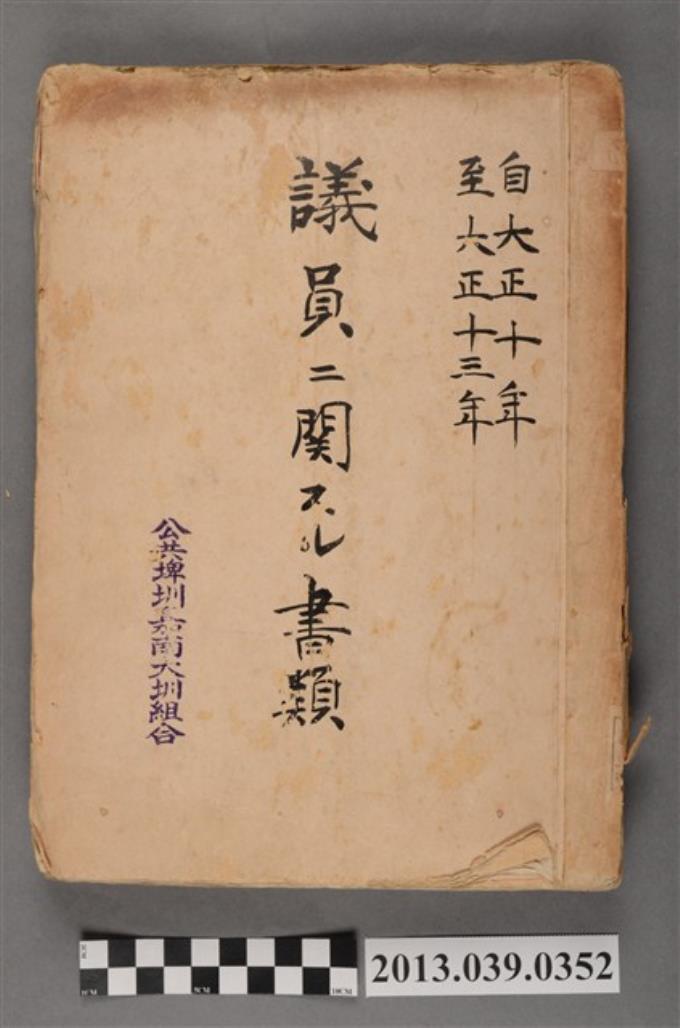 自大正十年
至大正十三年
議員ニ関スル書類
公共埤圳嘉南大圳組合
2013.039.0352
5CM
10CM